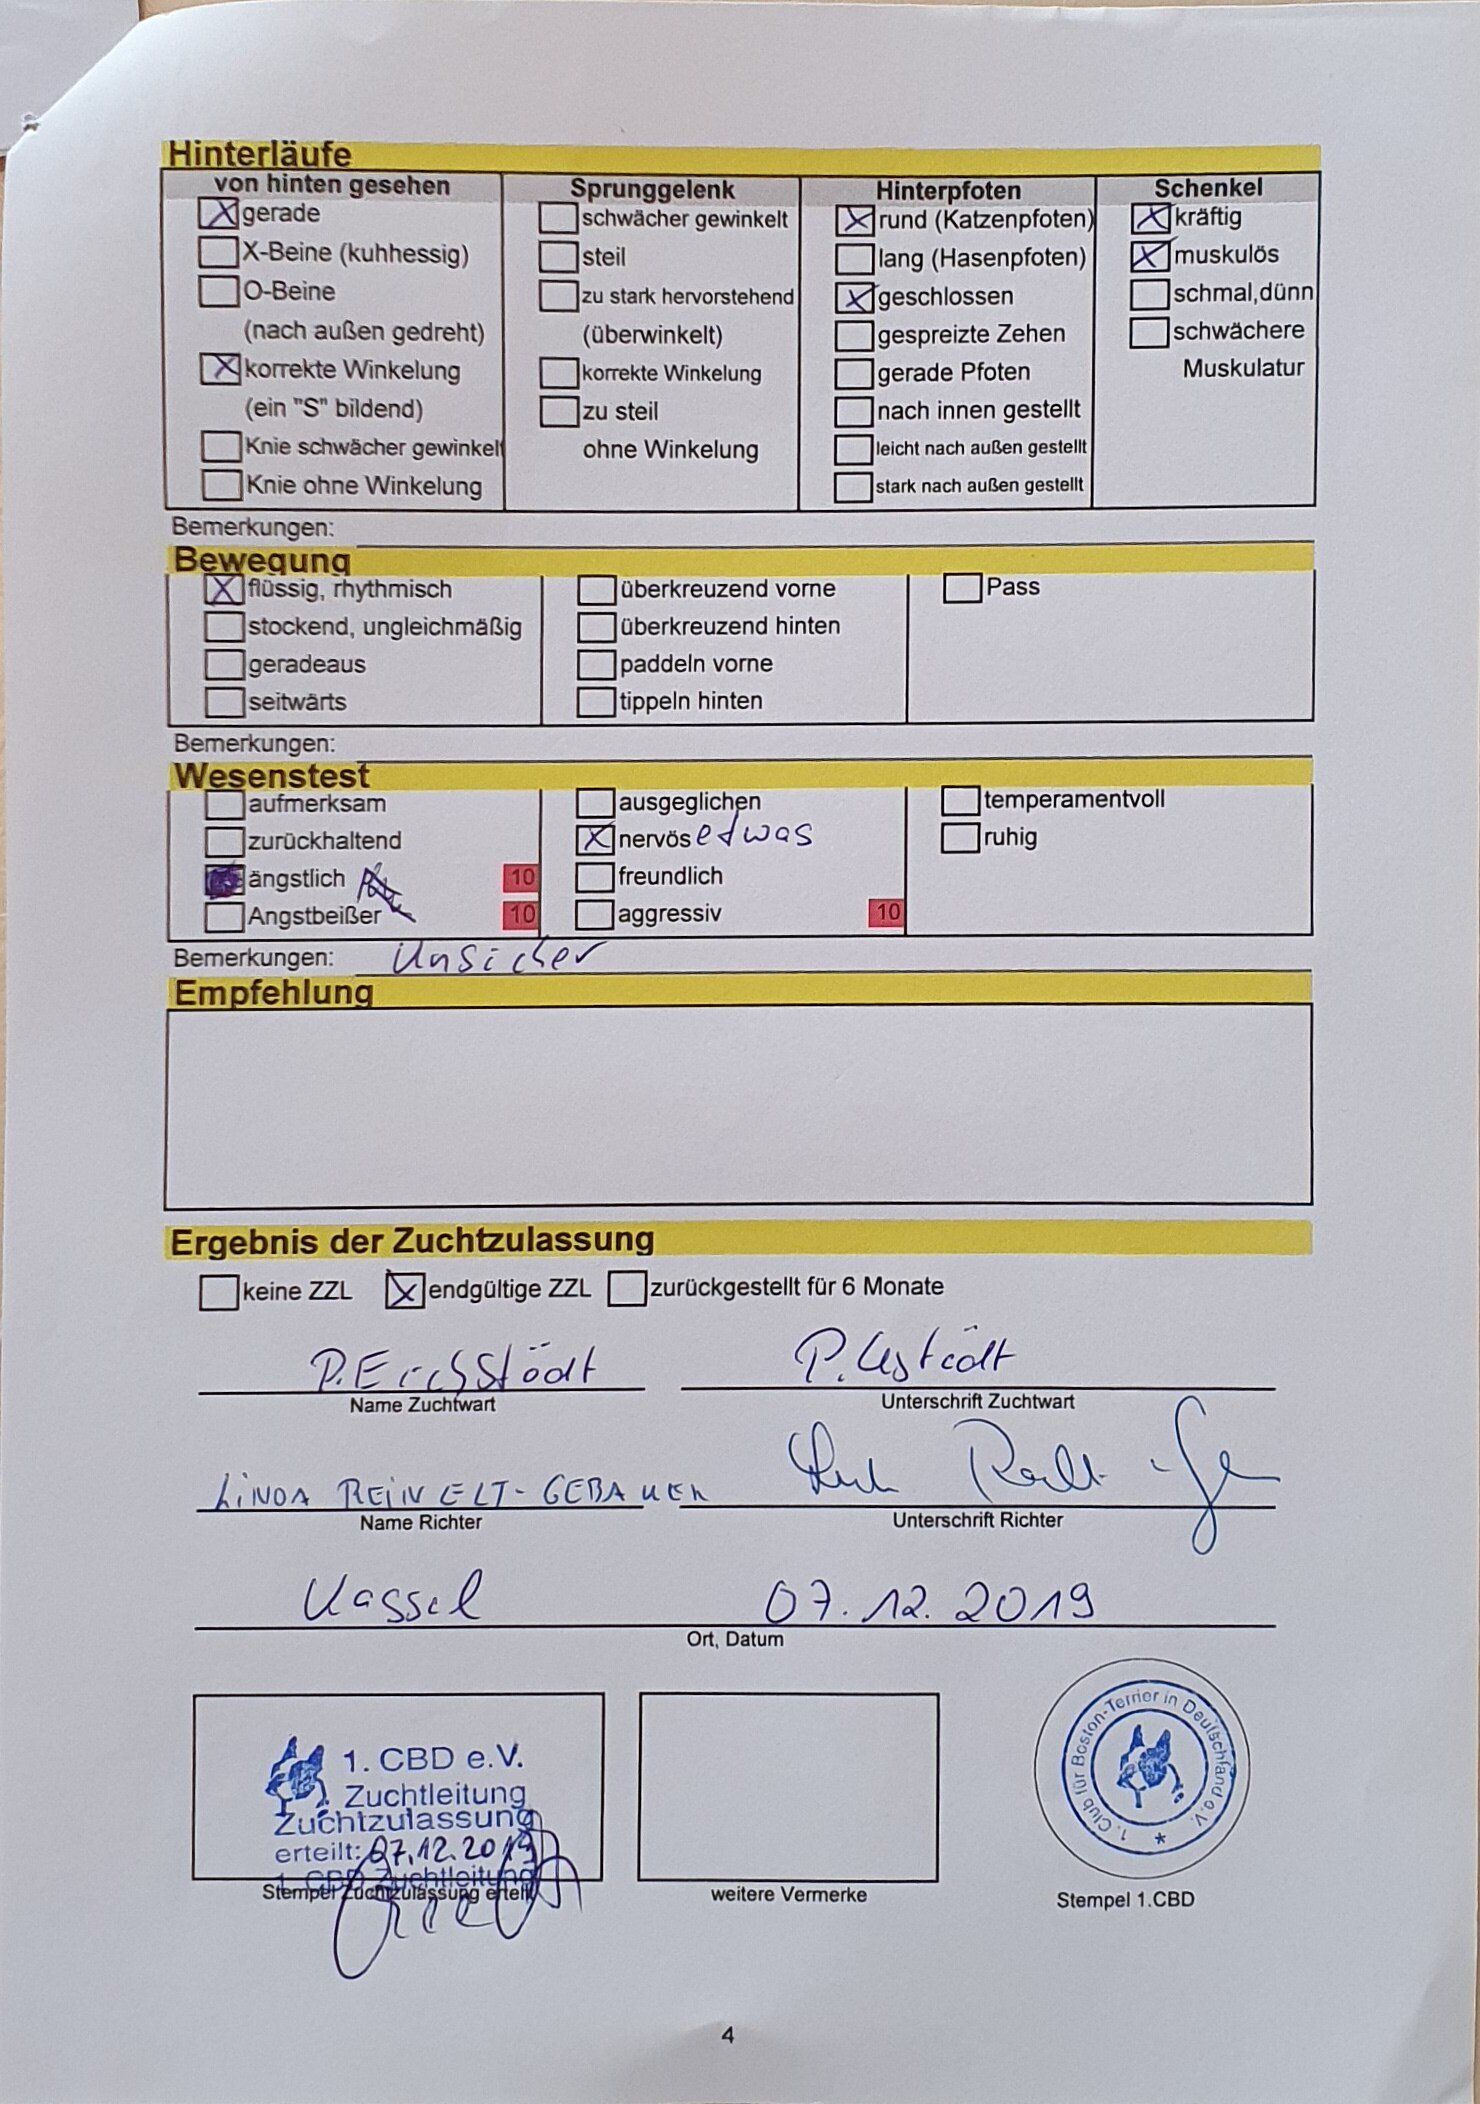 Hinterläufe
von hinten gesehen Sprunggelenk Hinterpfoten Schenkel
gerade schwächer gewinkelt rund (Katzenpfoten) kräftig
X-Beine (kuhhessig) steil lang (Hasenpfoten) muskulös
O-Beine zu stark hervorstehend geschlossen schmal,dünn
(nach außen gedreht) (überwinkelt) gespreizte Zehen schwächere
korrekte Winkelung korrekte Winkelung gerade Pfoten Muskulatur
(ein "S" bildend) zu steil nach innen gestellt
Knie schwächer gewinkelt ohne Winkelung leicht nach außen gestellt
Knie ohne Winkelung stark nach außen gestellt
Bemerkungen:
Bewegung
flüssig, rhythmisch überkreuzend vorne Pass
stockend, ungleichmäßig überkreuzend hinten
geradeaus paddeln vorne
seitwärts tippeln hinten
Bemerkungen:
Wesenstest
aufmerksam ausgeglichen temperamentvoll
zurückhaltend nervös etwas ruhig
ängstlich 10 freundlich
Angstbeißer 10 aggressiv 10
Bemerkungen: Unsicher
Empfehlung
Ergebnis der Zuchtzulassung
keine ZZL endgültige ZZL zurückgestellt für 6 Monate
Name Zuchtwart Unterschrift Zuchtwart
LINDA REINELT-GEBAUER
Name Richter Unterschrift Richter
Kassel 07.12.2019
Ort, Datum
1. CBD e.V.
Zuchtleitung
Zuchtzulassung
erteilt: 07.12.2019
1. CBD Zuchtleitung
Stempel Zuchtzulassung erteilt weitere Vermerke Stempel 1.CBD
1. Club für Boston-Terrier in Deutschland e.V.
4